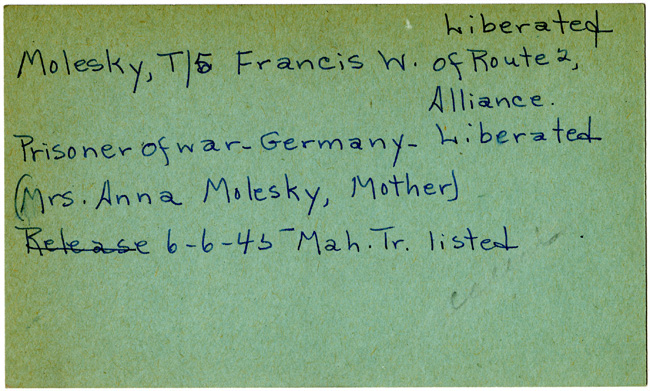 Liberated
Molesky, T/5 Francis W. of Route 2,
Alliance.
Prisoner of war - Germany - Liberated
(Mrs. Anna Molesky, Mother)
Release 6-6-45 - Mah. Tr. listed